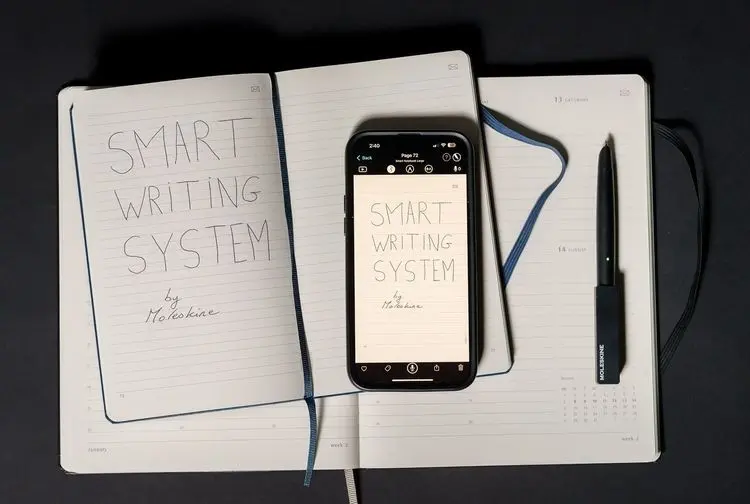 SMART
WRITING
SYSTEM
by
Moleskine
2:40
Back
Page 72
Smart Notebook Large
SMART
WRITING
SYSTEM
by
Moleskine
13 SATURDAY
14 SUNDAY
MOLESKINE
January
week 2
week 2